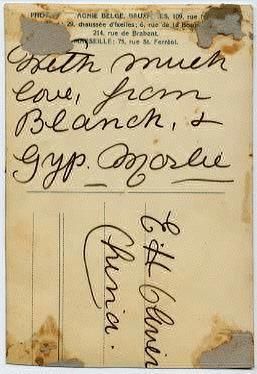 BELGE, BRUXELLES, 109, rue
29, chaussée d'Ixelles; 6, rue de la
214, rue de Brabant.
MARSEILLE: 75, rue St. Ferréol.
With much
love, from
Blanch, &
Gyp. Morlie
E H Olivier
China.